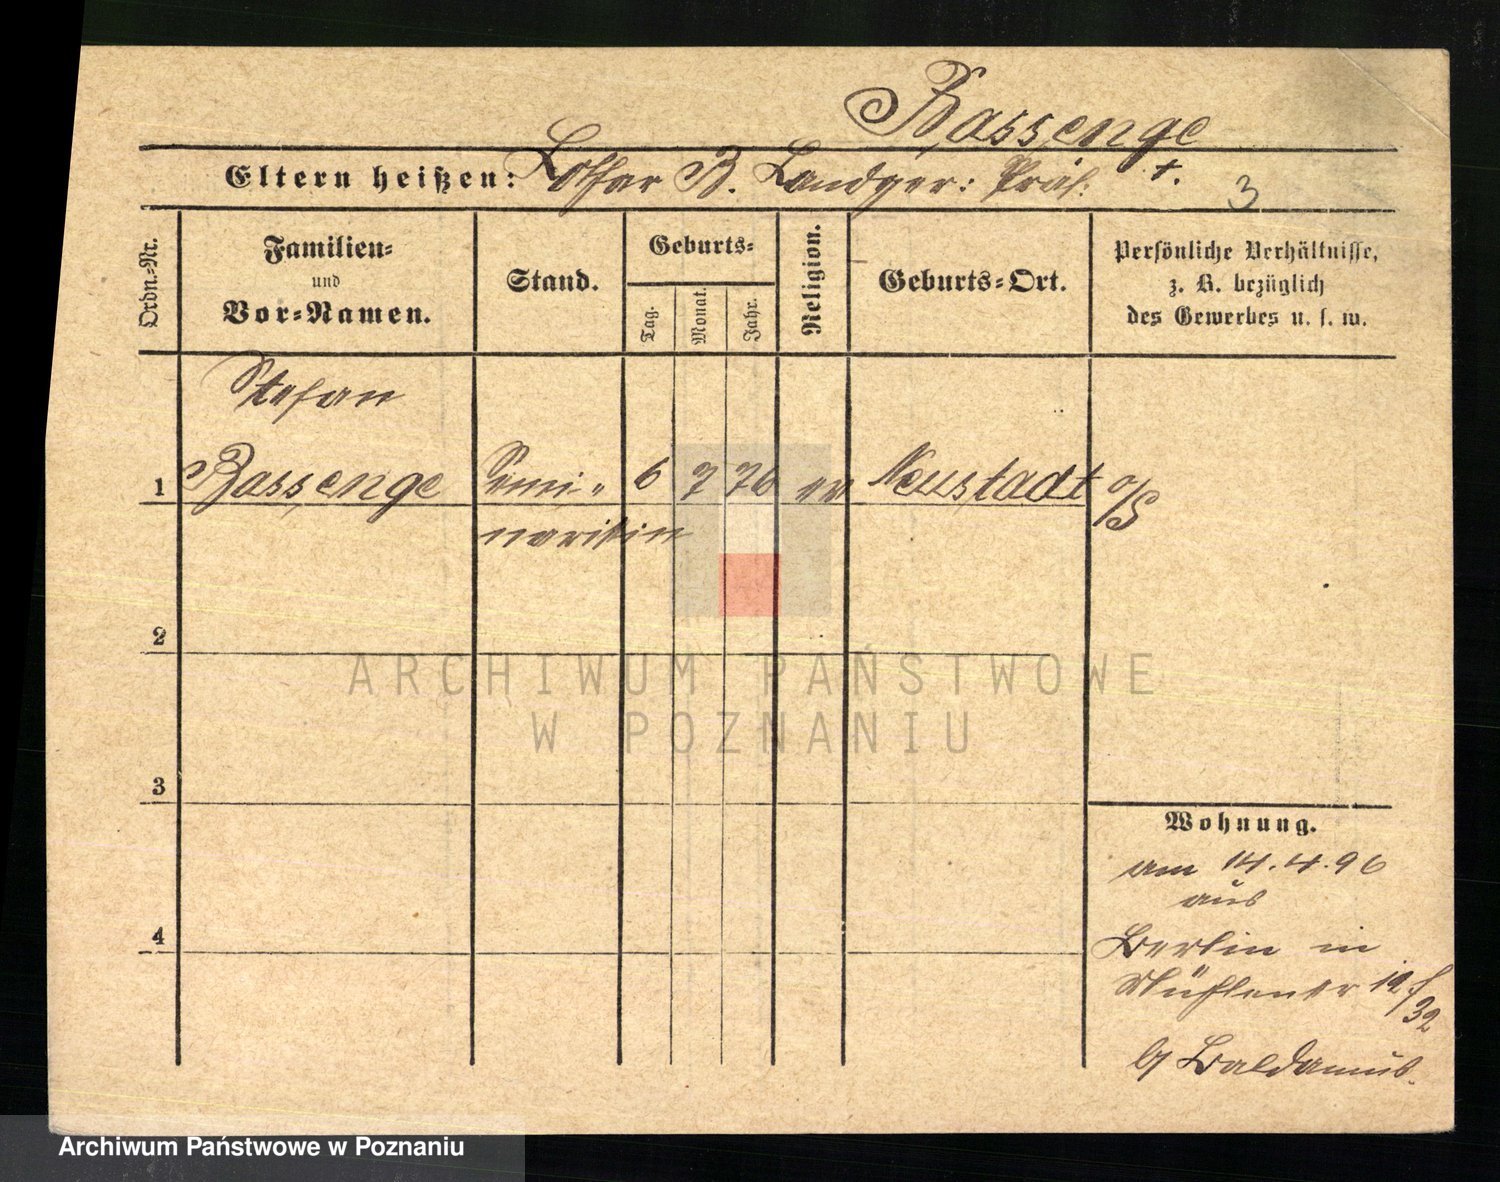 Bassenge
Eltern heißen: Lothar B. Landger: Präs: +.
3
Ordn.-Nr.
Familien-
und
Vor-Namen.
Stand.
Geburts-
Tag.
Monat.
Jahr.
Religion.
Geburts-Ort.
Persönliche Verhältnisse,
z. B. bezüglich
des Gewerbes u. s. w.
Stefan
1 Bassenge Semi- 6 7 76 ev Neustadt o/S
naristin
2
ARCHIWUM PAŃSTWOWE
W POZNANIU
3
4
Wohnung.
am 14.4.96
aus
Berlin in
32
Baldamus.
Archiwum Państwowe w Poznaniu